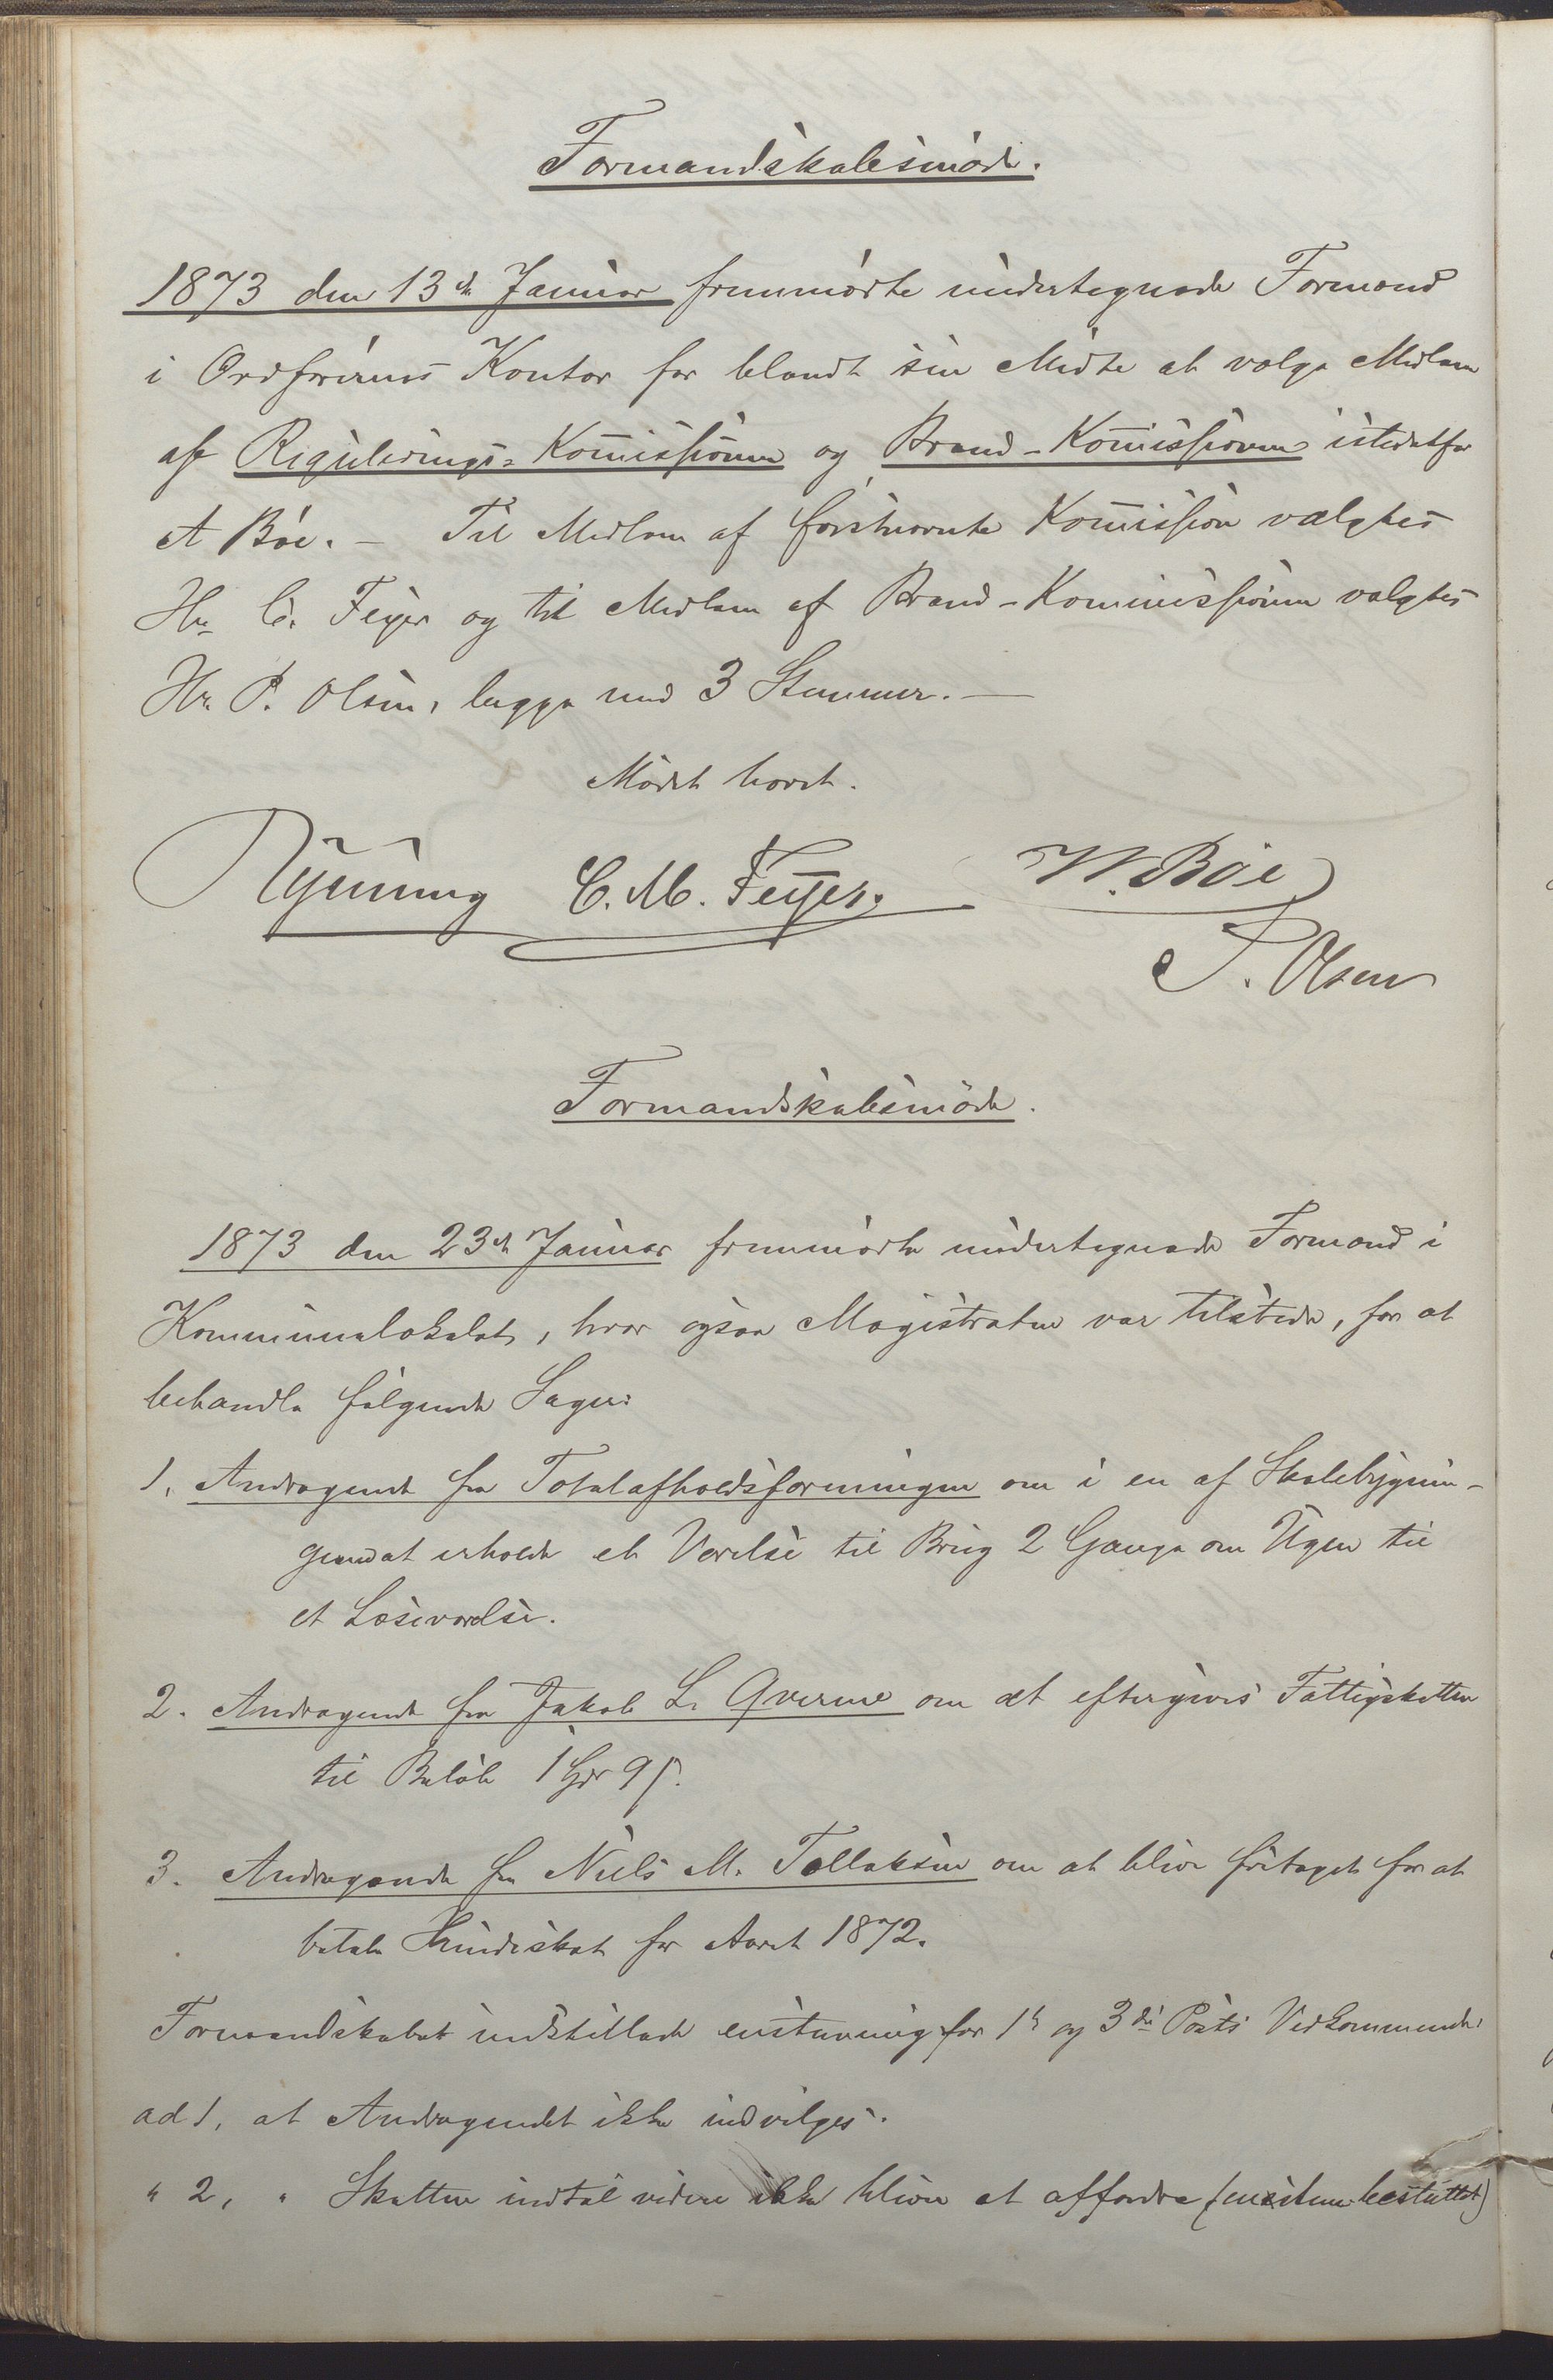 Formandskabsmøde.
1873 den 13de Januar fremmødte undertegnede Formænd
i Ordførerens Kontor for blandt sin Midte at vælge Medlem
af Regulerings-Kom̄issionen og Brand-Kom̄issionen istedetfor
A Bøe. – Til Medlem af førstnævnte Kom̄ission valgtes
Hr. C. Feyer og til Medlem af Brand-Kommissionen valgtes
Hr. P. Olsen, begge med 3 Stemmer. –
Mødet hævet.
C. M. Feyer. W. Bøe
P. Olsen
Formandskabsmøde.
1873 den 23de Januar fremmødte undertegnede Formænd i
Kommunelokalet, hvor ogsaa Magistraten var tilstede, for at
behandle følgende Sager:
1, Andragende fra Totalafholdsforeningen om i en af Skolebygnin-
gerne at erholde et Værelse til Brug 2 Gange om Ugen til
et Læseværelse.
2. Andragende fra Jakob L. Qverme om at eftergives Fattigskatten
til Beløb 1 Spd 9 s.
3. Andragende fra Niels M. Tollaksen om at blive fritaget for at
betale Hundeskat for Aaret 1872.
Formandskabet indstillede enstemmig for 1ste og 3die Posts Vedkommende:
ad 1, at Andragendet ikke indvilges.
" 2, " Skatten indtil videre ikke bliver at affordre (enstem. besluttet)